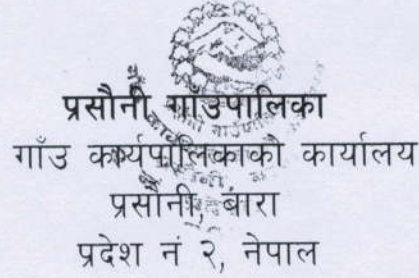 प्रसौनी गाँउपालिका
गाँउ कार्यपालिकाको कार्यालय
प्रसौनी, बारा
प्रदेश नं २, नेपाल